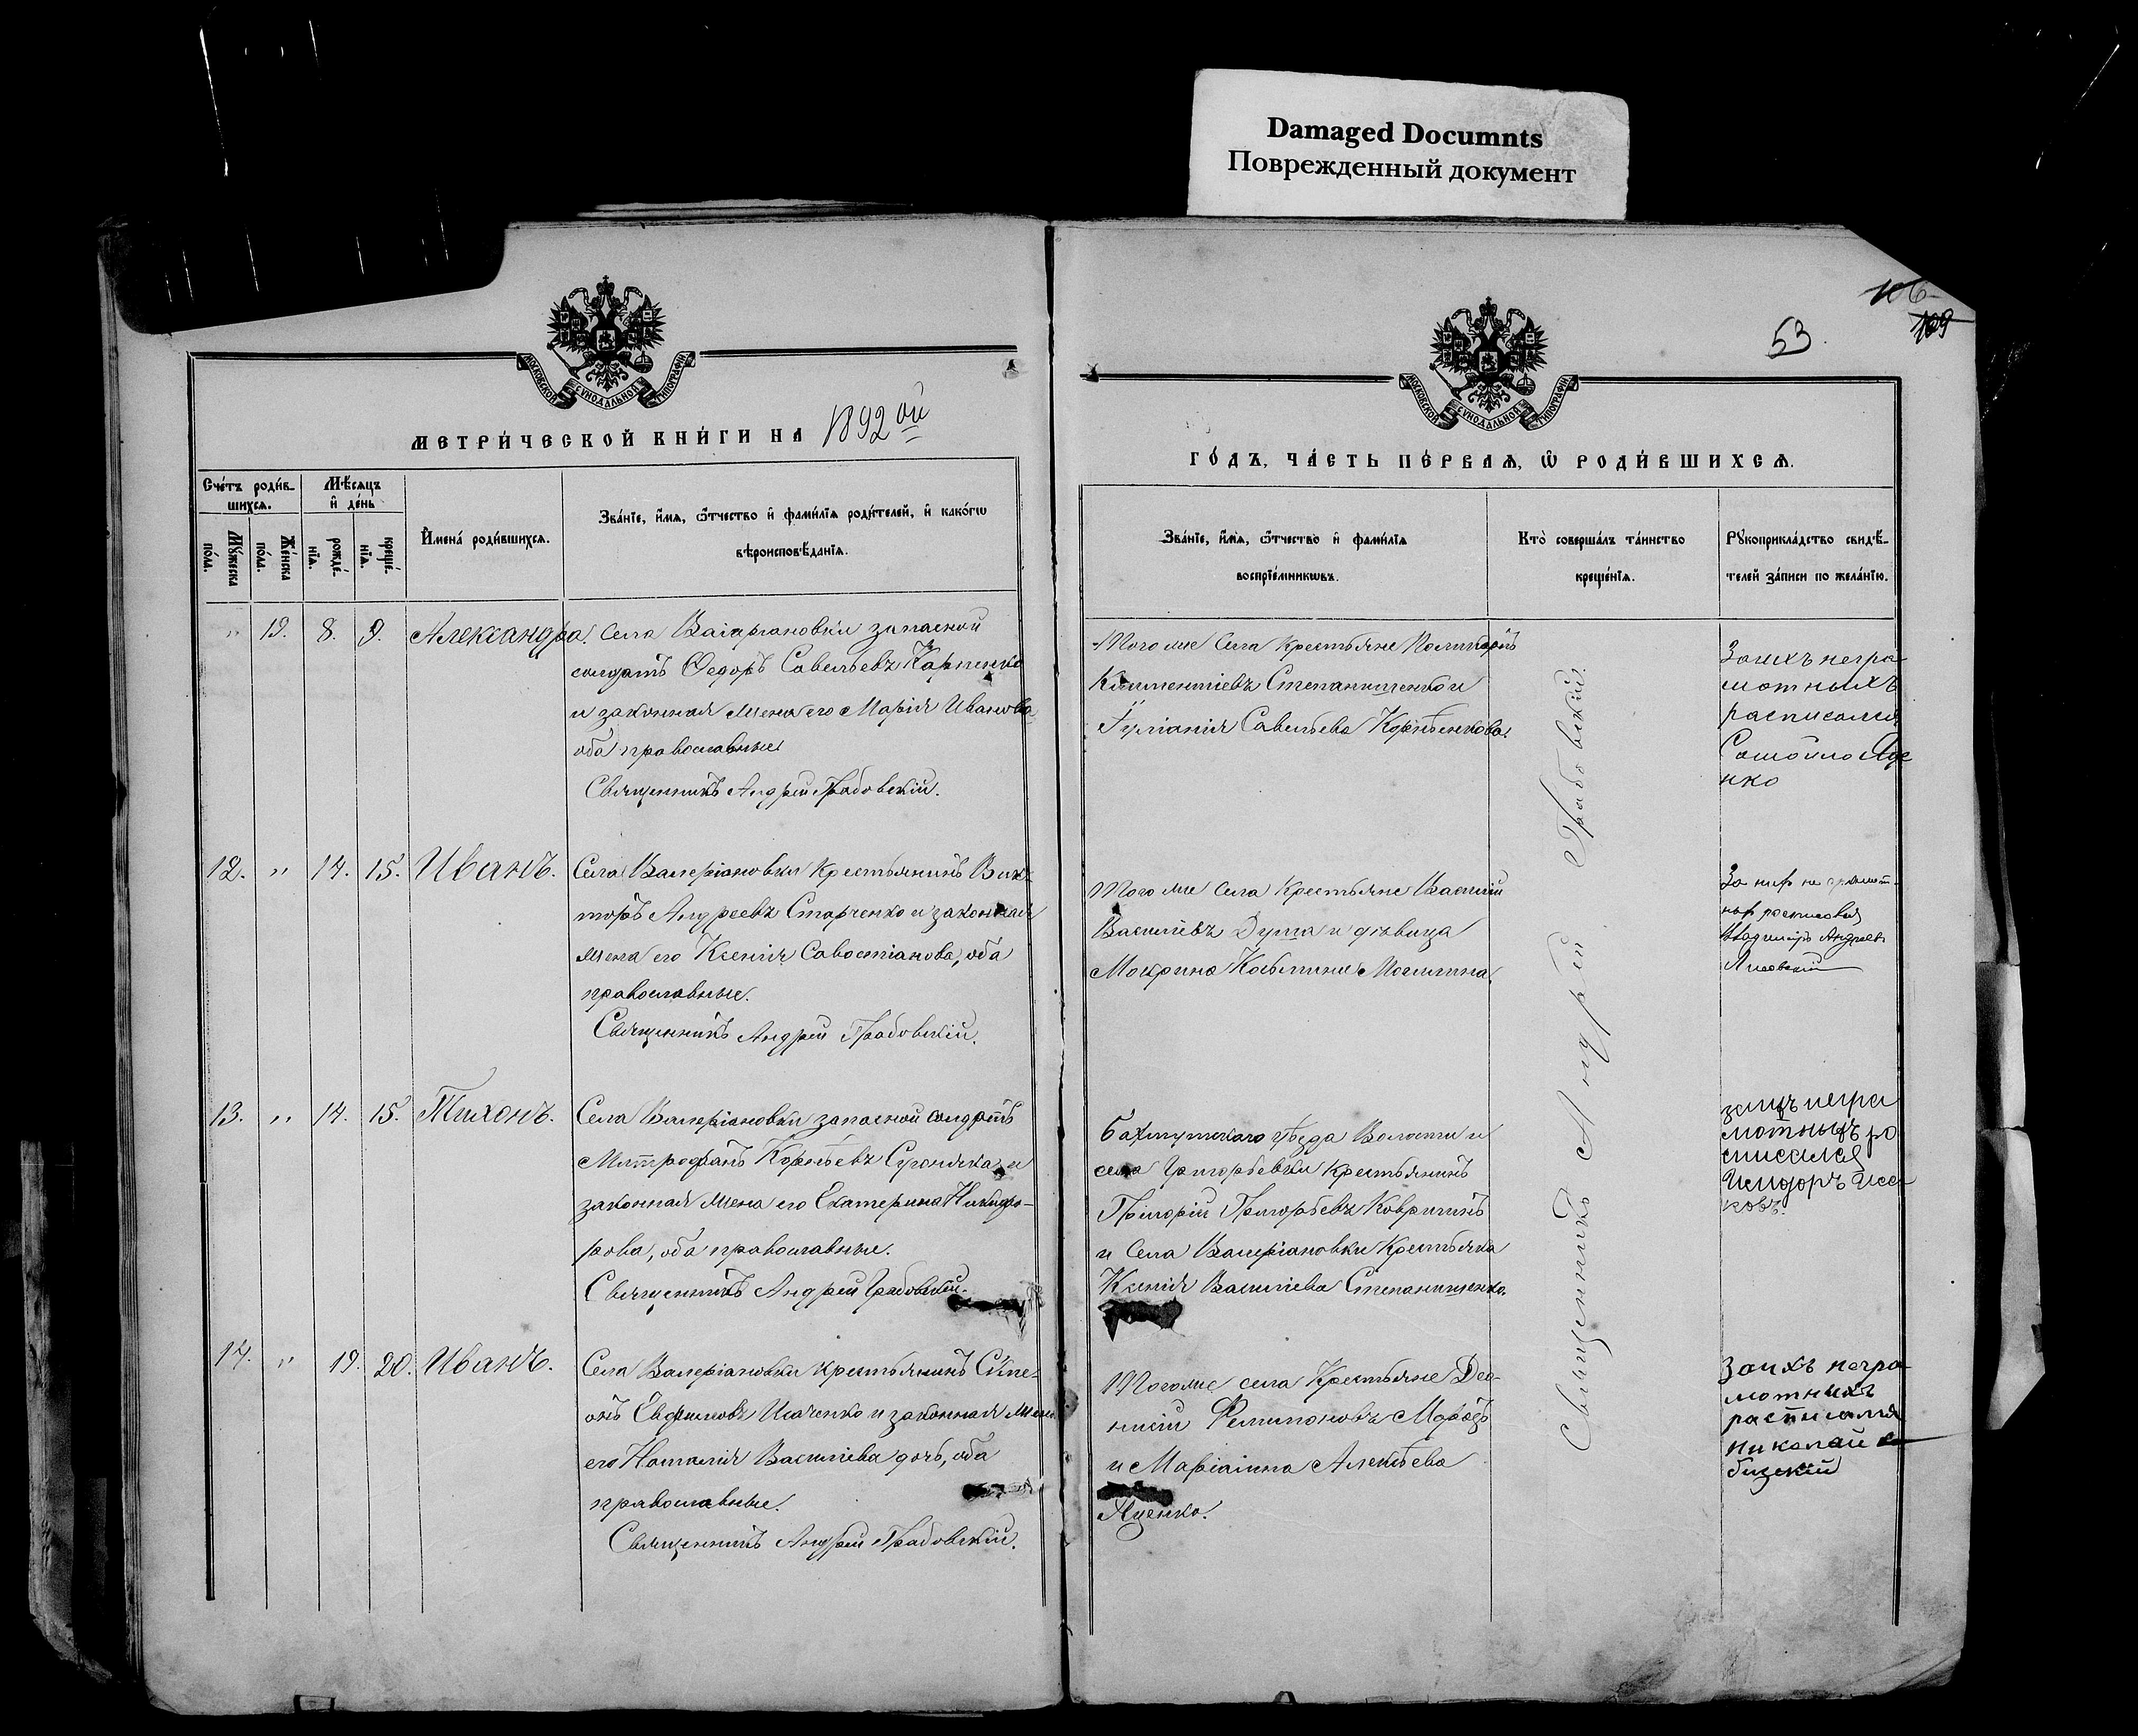 Damaged Documnts
Поврежденный документ
106
109
53.
МОСКОВСКОЙ СУНОДАЛЬНОЙ ТИПОГРАФІИ
МОСКОВСКОЙ СУНОДАЛЬНОЙ ТИПОГРАФІИ
МЕТРИ́ЧЕСКОЙ КНИ́ГИ НА 1892ой
ГО́ДЪ, ЧА́СТЬ ПЕ́РВАѦ, Ѡ РОДИ́ВШИХСѦ.
Сче́тъ роди́в-
шихсѧ.
Мꙋжеска по́ла.
Же́нска по́ла.
Мѣ́сѧцъ
и҆ де́нь
рожде́-
нїѧ.
креще́-
нїѧ.
И҆мена̀ роди́вшихсѧ.
Зва́нїе, и҆́мѧ, ѻ҆́тчество и҆ фами́лїѧ роди́телей, и҆ како́гѡ
вѣроисповѣ́данїѧ.
Зва́нїе, и҆́мѧ, ѻ҆́тчество и҆ фами́лїѧ
воспрїе́мникѡвъ.
Кто̀ соверша́лъ та́инство
креще́нїѧ.
Рꙋкоприкла́дство свидѣ́-
телей за́писи по жела́нїю.
" 19. 8. 9. Александра. Села Валеріановки запасной
солдатъ Ѳедоръ Савельевъ Карпенко
и законная жена его Марія Иванова
оба православные
Священникъ Андрей Грабовскій.
Того же Села Крестьяне Поликарпъ
Климентіевъ Степанищенко и
Іуліанія Савельева
За ихъ негра-
мотныхъ
расписался
Самойло
12. " 14. 15. Иванъ. Села Валеріановки Крестьянинъ Вик-
торъ Андреевъ Старченко и законная
жена его Ксенія Савостіанова, оба
православные.
Священникъ Андрей Грабовскій.
Того же Села Крестьяне Василій
Васильевъ Дума и дѣвица
Мокрина
За нихъ не грамот-
ныхъ росписовся
Владиміръ Андреевъ
13. " 14. 15. Тихонъ. Села Валеріановки запасной солдатъ
Митрофанъ Корнѣевъ и
законная жена его Екатерина Никифо-
рова, оба православные.
Священникъ Андрей Грабовскій.
Бахмутскаго уѣзда Волости и
села Григорьевки Крестьянинъ
Григорій Григорьевъ
и Села Валеріановки Крестьянка
Ксенія Васильева Степанищенко.
за ихъ негра
мотныхъ ро
списался
Исидоръ Иса-
ковъ.
14. " 19. 20. Иванъ. Села Валеріановки крестьянинъ Симе-
онъ Евфимовъ Исаченко и законная жена
его Наталія Васильева дочь, оба
православные.
Священникъ Андрей Грабовскій.
Того же села Крестьяне Део-
нисій Филимоновъ Морозъ
и Маріамна Алексѣева
Яценко.
За ихъ негра-
мотныхъ
расписался
николай
Священникъ Андрей Грабовскій